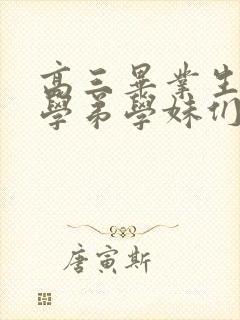 高三畢業生
學弟學妹们
唐寅斯